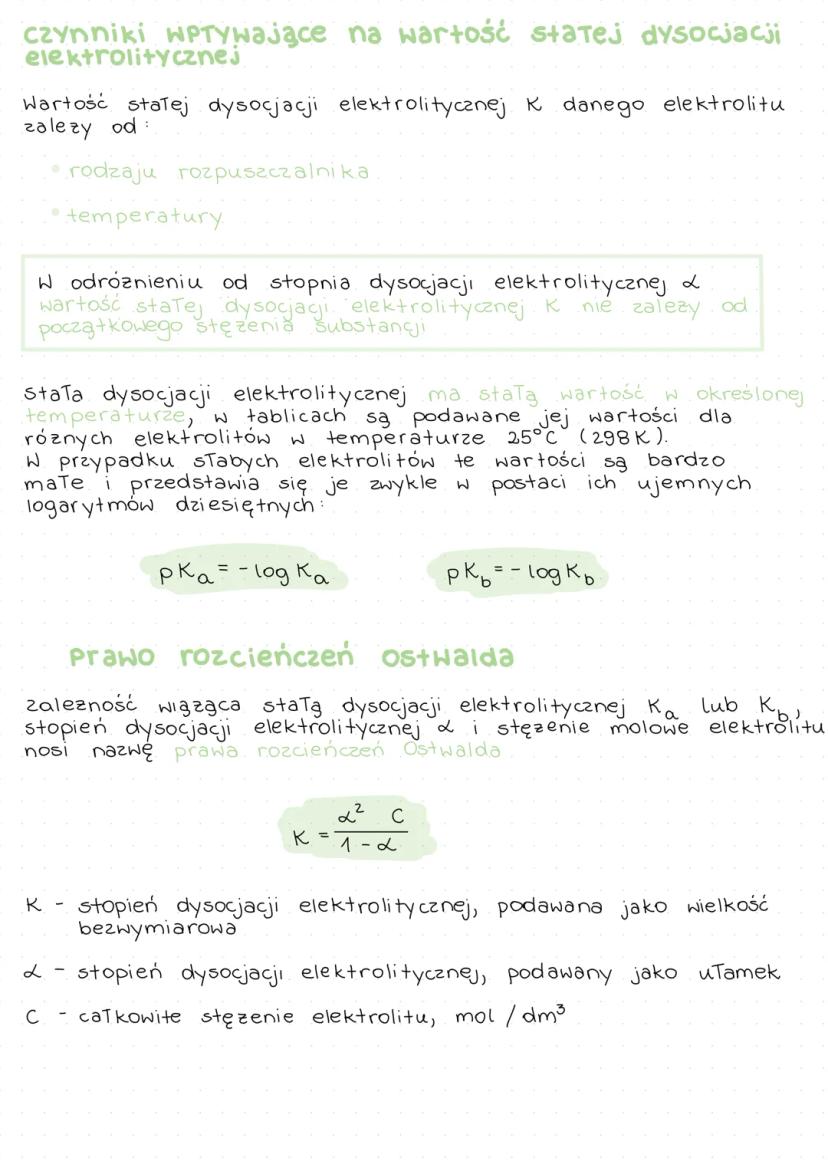 czynniki wpływające na wartość stałej dysocjacji
elektrolitycznej
Wartość stałej dysocjacji elektrolitycznej K danego elektrolitu
zależy od:
• rodzaju rozpuszczalnika
• temperatury
W odróżnieniu od stopnia dysocjacji elektrolitycznej α
wartość stałej dysocjacji elektrolitycznej K nie zależy od
początkowego stężenia substancji
stała dysocjacji elektrolitycznej ma stałą wartość w określonej
temperaturze, w tablicach są podawane jej wartości dla
różnych elektrolitów w temperaturze 25°C (298K).
W przypadku słabych elektrolitów te wartości są bardzo
małe i przedstawia się je zwykle w postaci ich ujemnych
logarytmów dziesiętnych:
pKₐ = - log Kₐ    pK_b = - log K_b
Prawo rozcieńczeń Ostwalda
zależność wiążąca stałą dysocjacji elektrolitycznej Kₐ lub K_b,
stopień dysocjacji elektrolitycznej α i stężenie molowe elektrolitu
nosi nazwę prawa rozcieńczeń Ostwalda
K = α² C / 1 - α
K - stopień dysocjacji elektrolitycznej, podawana jako wielkość
bezwymiarowa
α - stopień dysocjacji elektrolitycznej, podawany jako ułamek
C - całkowite stężenie elektrolitu, mol / dm³